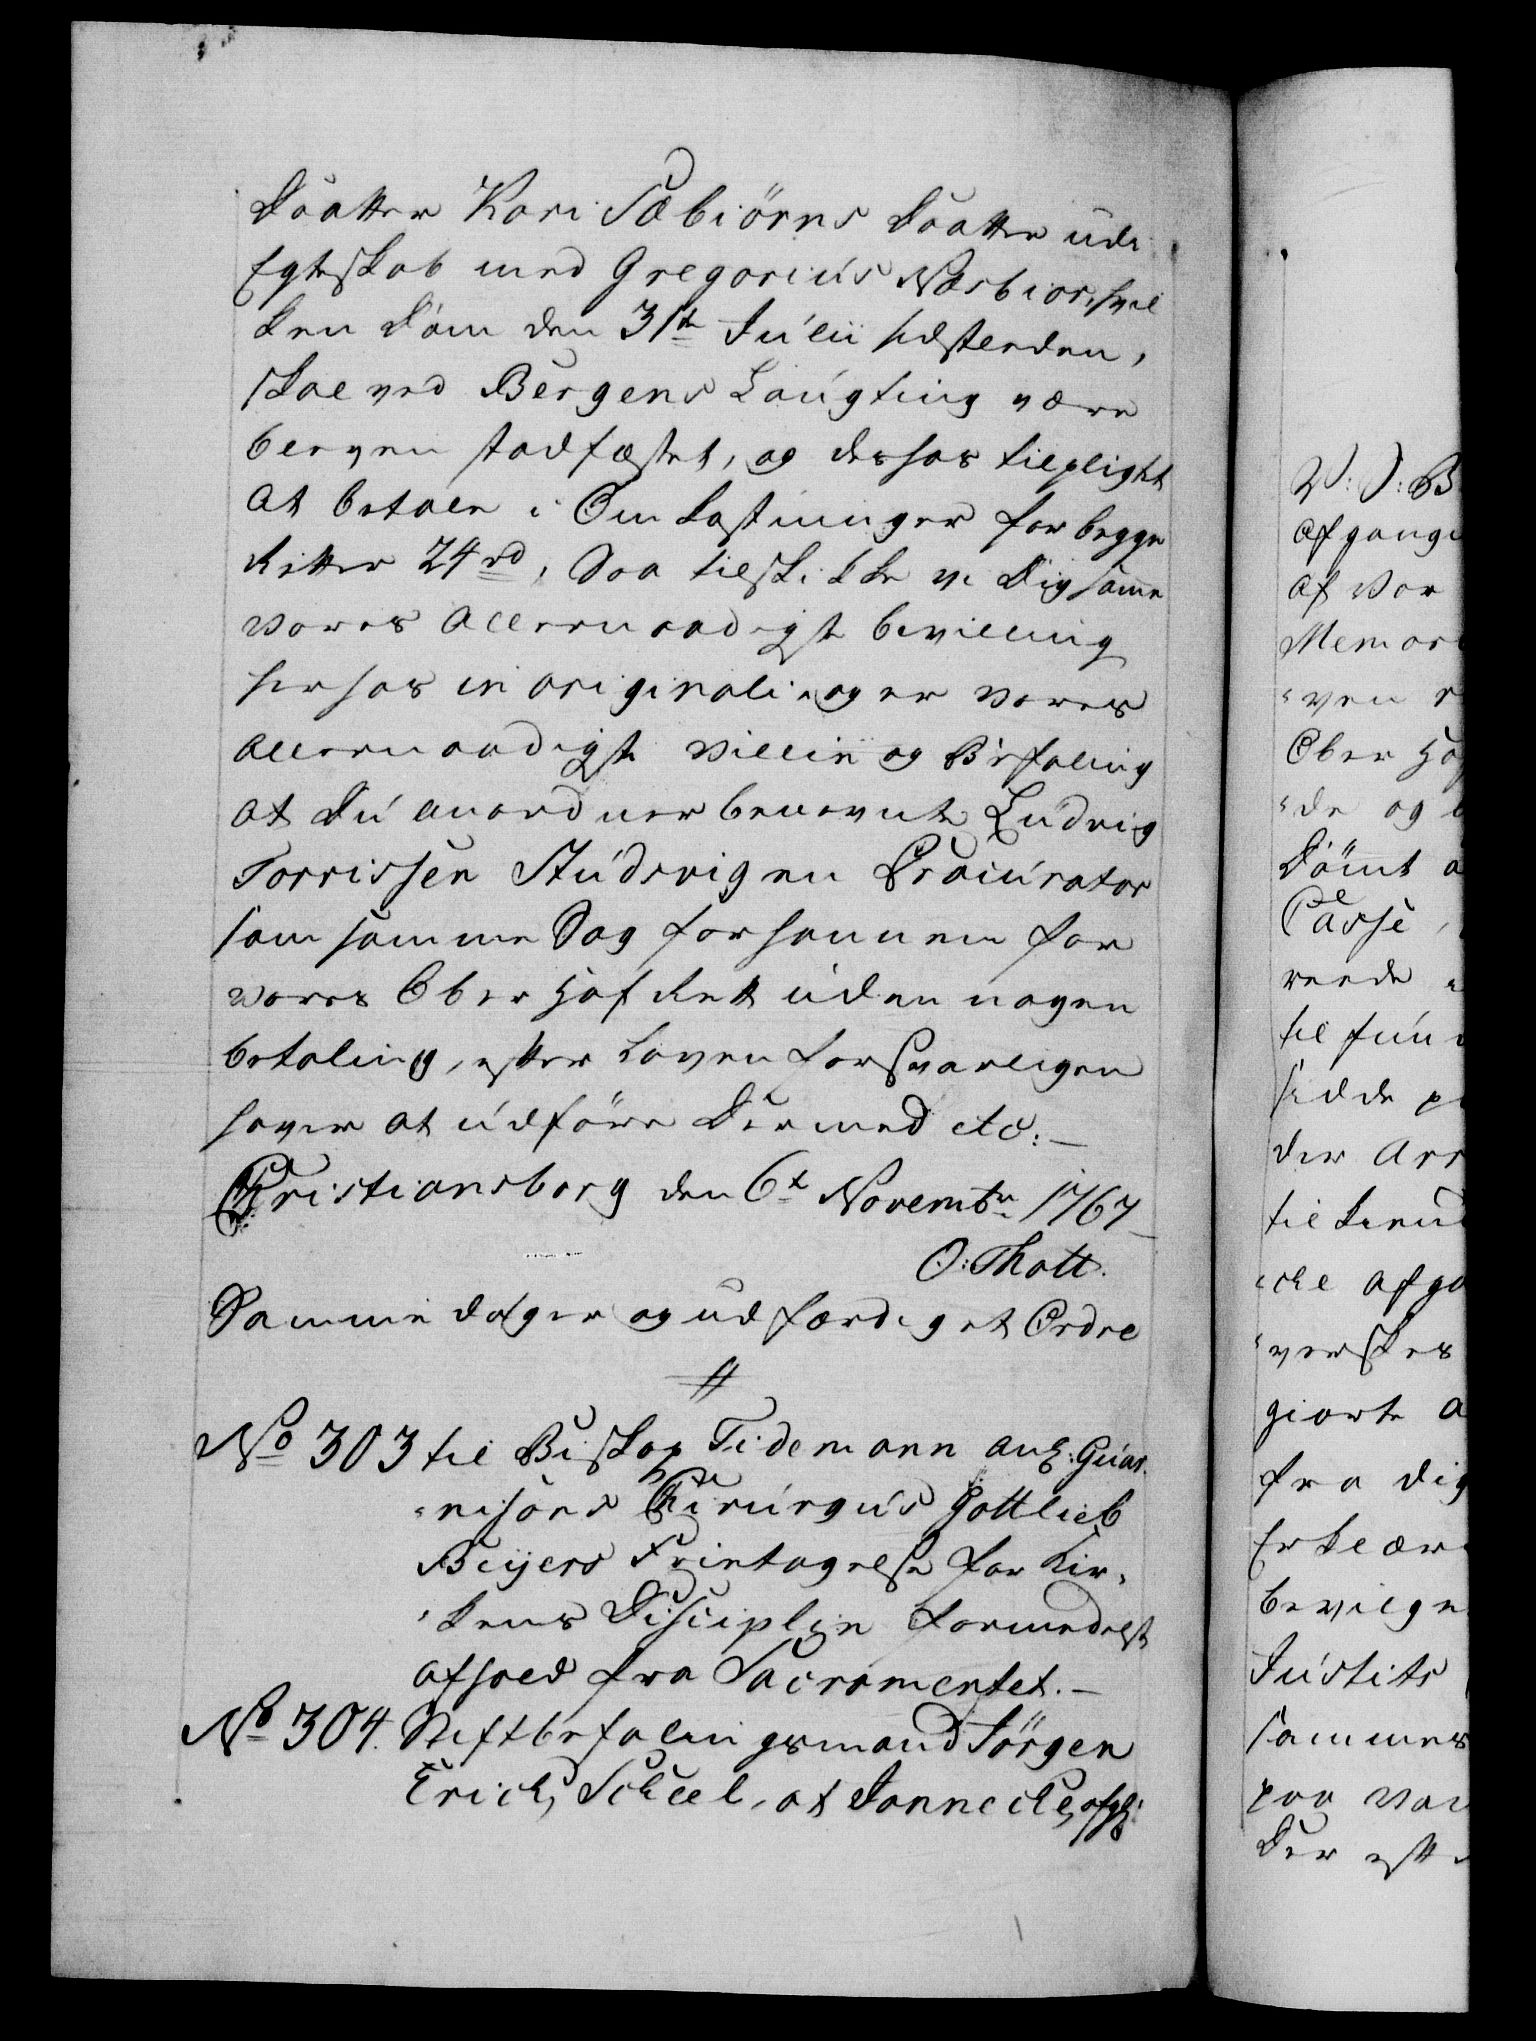 Daatter Kari Sæbiörns Daatter udi
Egteskab med Gregorius Næsbior, hvil
ken Dom den 31te Julii sidstleden,
skal ved Bergens Laugting være
bleven stadfæstet, og deshos tilpligtet
at betale i Omkastninger for begge
Retter 24 rd, Saa tilskikke vi Dig samme
vores allernaadigste bevilling
herhos in originali, og er vores
allernaadigste Villie og Befaling
at Du anordner benevnte Ludvig
Torrissen Studsvigen Procurator
som samme Sag for hannem for
vores Ober Hof Rett uden nogen
betaling, efter Loven forsvarligen
haver at udföre Dermed etc:
Christiansborg den 6te Novembr 1767
O: Thott.
Samme dag er og udfærdiget Ordre
No 303 til Biskop Tidemann ang: Guar-
nisons Chirurgus Gottlieb
Beijers Frietagelse for Kir-
kens Disciplin formedelst
afhold fra Sacramentet.
No 304. Stiftbefalingsmand Jörgen
Erich Scheel, at Janneche afgl:
V: J: B
afgange
af vor
Memori
ven
Ober Hof
de og
Dömt
Casse,
reede
til
sidde
der Arr
til
che afga
verskes
giorte
fra dig
Erklær
bevilge
Justits
sammes
paa vor
Der efte